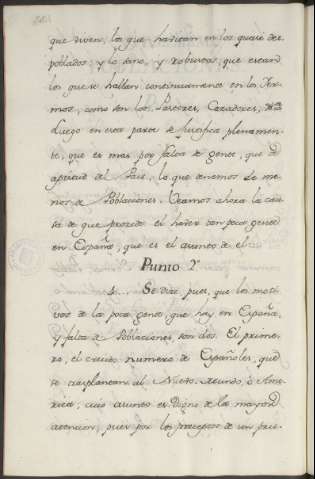 que viven, los que havitan en los quasi des-
poblados; y lo sano, y robustos, que estand
los que se hallan continuamente en los Yer-
mos, como son los Pastores, Cazadores, &a
Luego en esta parte se justifica plenamen-
te, que es mas por falta de gente, que de
aptitud del Pais, lo que tenemos de me-
nos de Poblaciones. Veamos ahora la cau-
sa de que procede el haber tan poca gente
en España, que es el asunto de el
Punto 2º
Se dice pues, que los moti-
vos de la poca gente, que hay en España,
y falta de Poblaciones son dos. El prime-
ro, el crecido numero de Españoles, que
se trasplantan al Nuevo Mundo, ó Ame-
rica, cuio asunto es digno de la mayor
atencion, pues por los preceptos de un pais